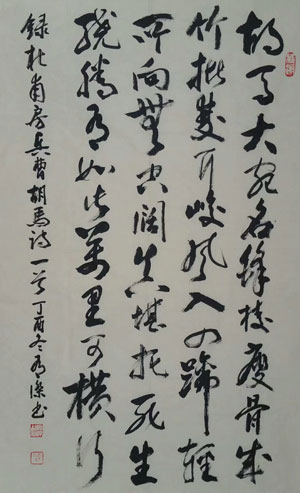 胡马大宛名鋒棱瘦骨成
竹批雙耳峻风入四蹄輕
所向無空阔真堪托死生
骁腾有如此萬里可横行
録杜甫房兵曹胡馬诗一首丁酉冬有傑书